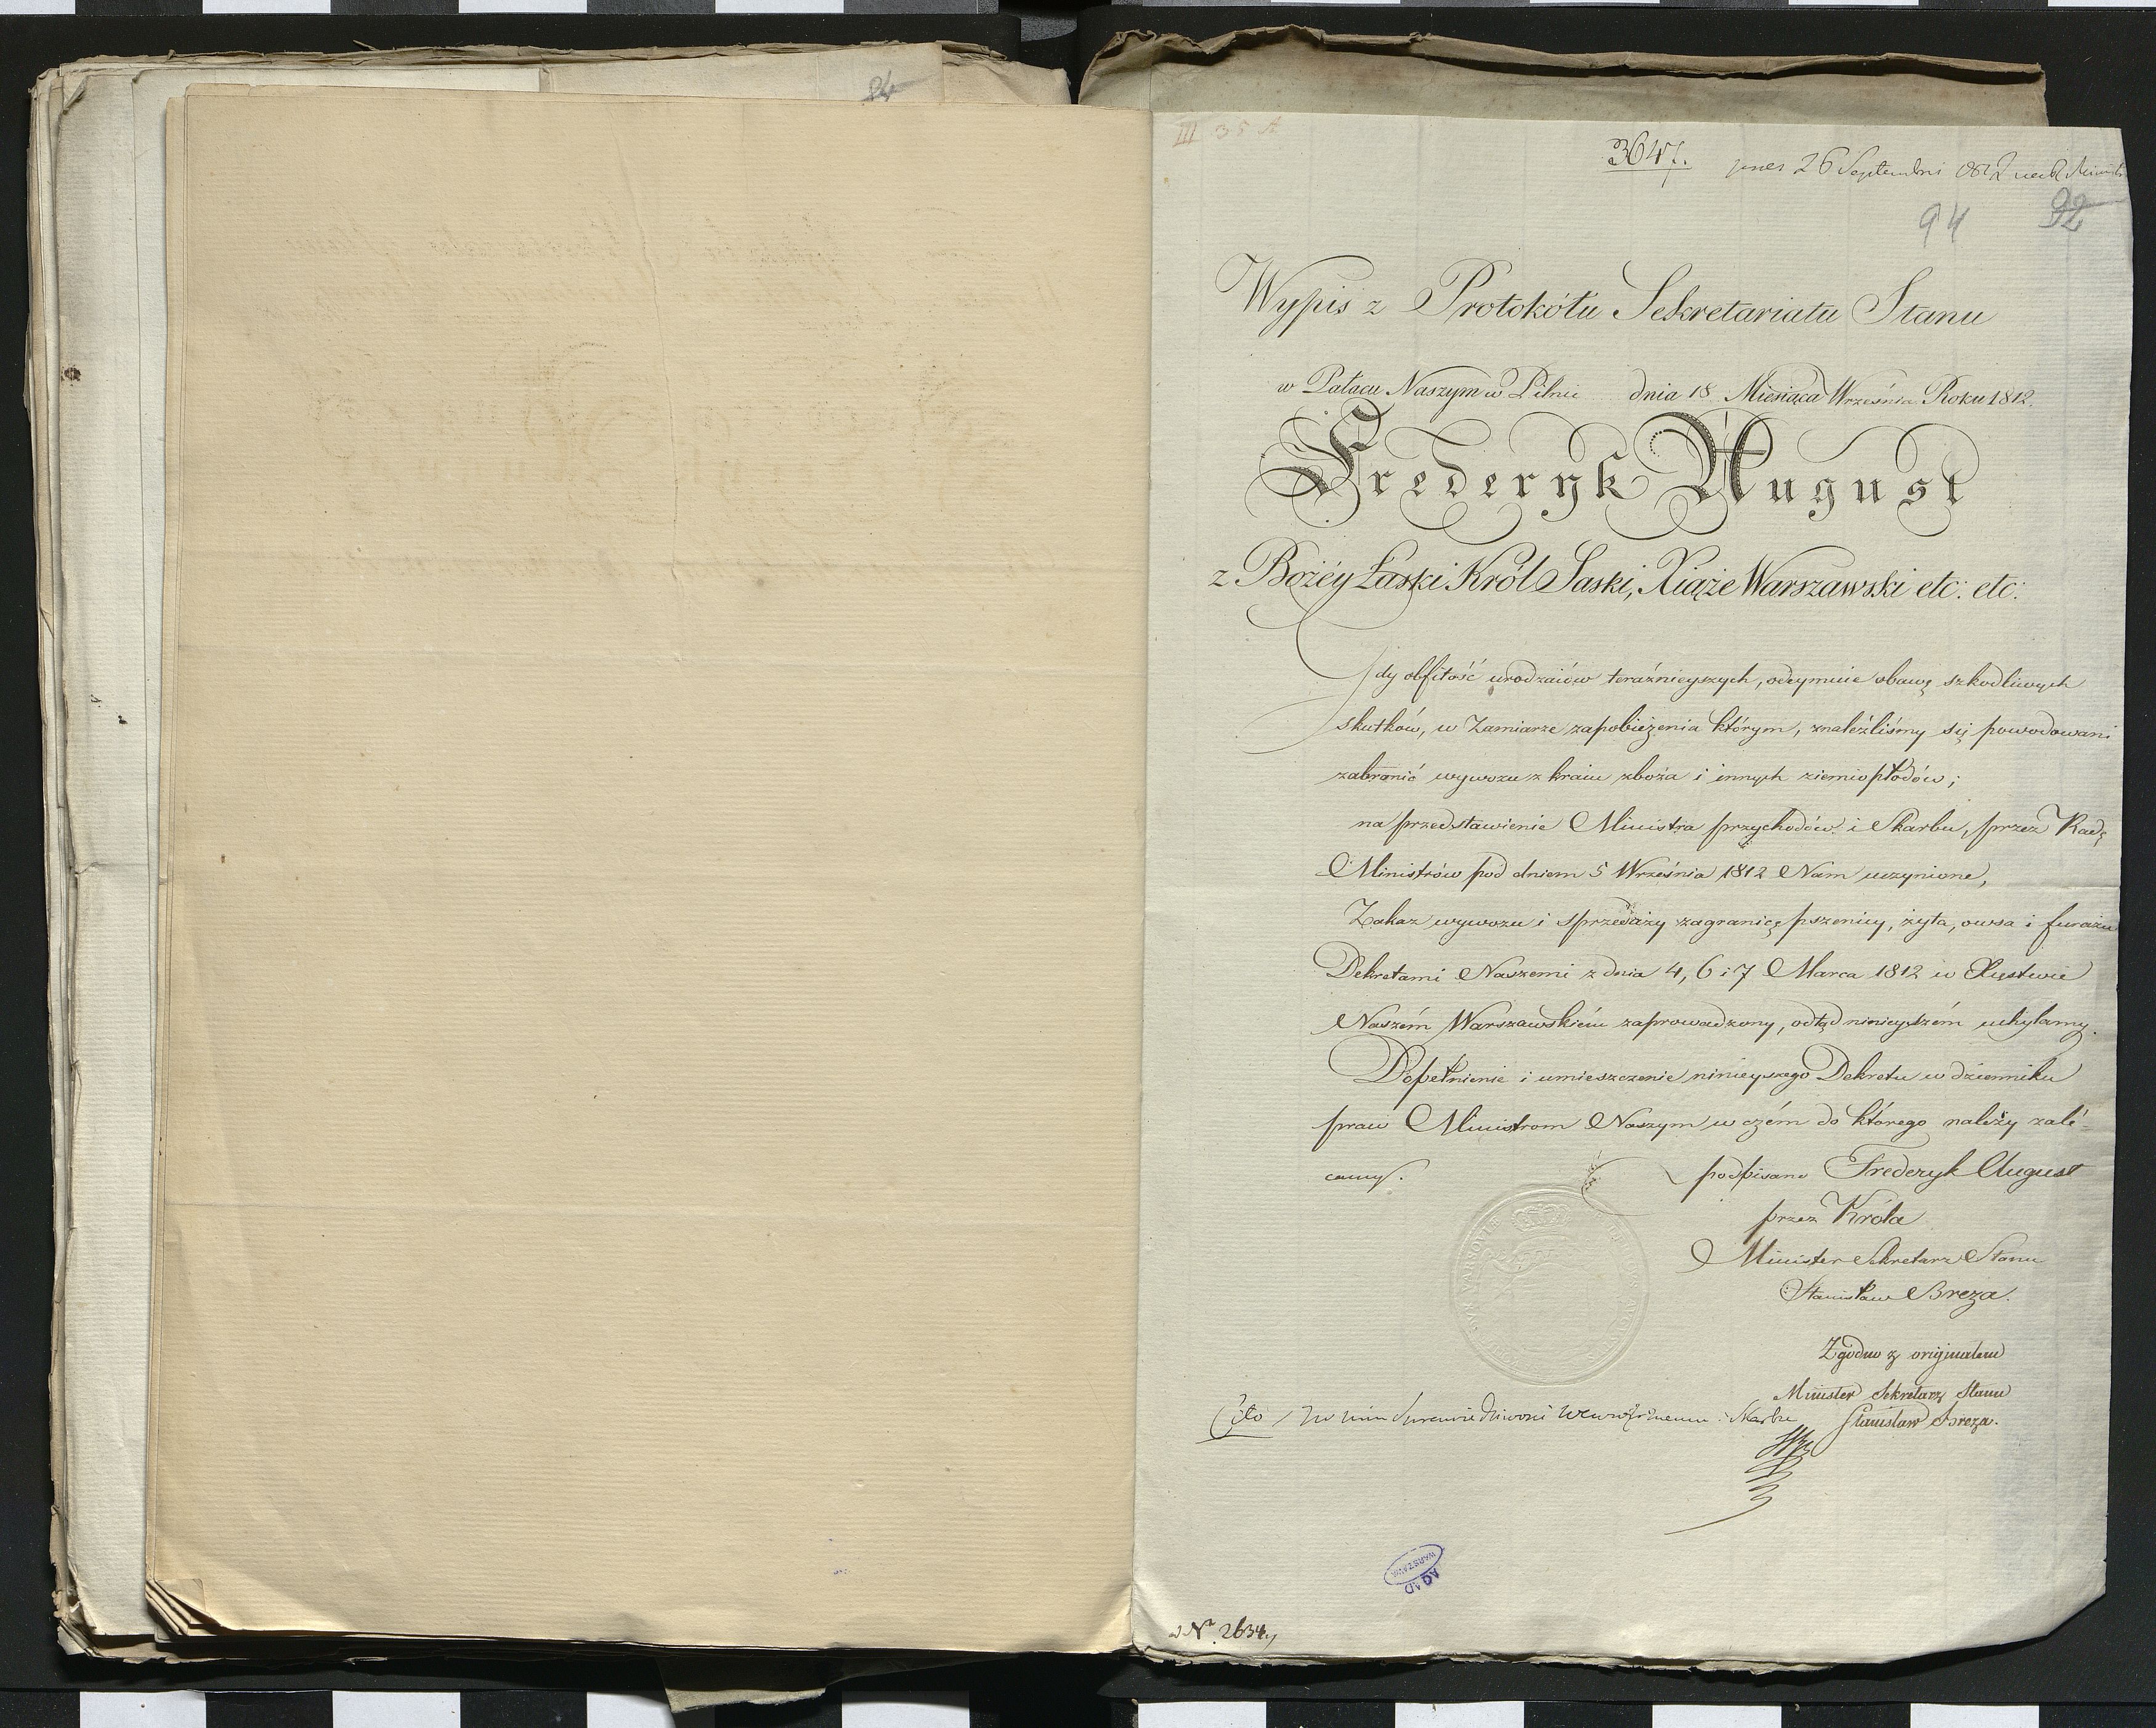 84
III 35 A
3647.
26 Septembris 1812
94 92
Wypis z Protokółu Sekretariatu Stanu
w Pałacu Naszym w Pilnic dnia 18 Miesiąca Września Roku 1812.
Frederyk August
z Bożéy Łaski Król Saski, Xiąże Warszawski etc: etc:
Gdy obfitość urodzaiów teraźnieyszych, odeymuie obawę szkodliwych
skutków, w Zamiarze zapobieżenia którym, znaleźliśmy się powodowani
zabronić wywozu z kraiu zboża i innych ziemiopłodów;
na przedstawienie Ministra przychodów i Skarbu, przez Radę
Ministrów pod dniem 5 Września 1812 Nam uczynione,
Zakaz wywozu i sprzedaży zagranicę pszenicy, żyta, owsa i furażu
Dekretami Naszemi z dnia 4, 6 i 7 Marca 1812 w Xięstwie
Naszém Warszawskiém zaprowadzony, odtąd ninieyszém uchylamy.
Dopełnienie i umieszczenie ninieyszego Dekretu w dzienniku
praw Ministrom Naszym w czém do którego należy zalé-
camy.
podpisano Frederyk August
przez Króla
Minister Sekretarz Stanu
Stanisław Breza.
Zgodno z originałem
Minister Sekretarz Stanu
Stanisław Breza.
Cito
Skarbu
AGAD
WARSZAWA
Nr. 2634